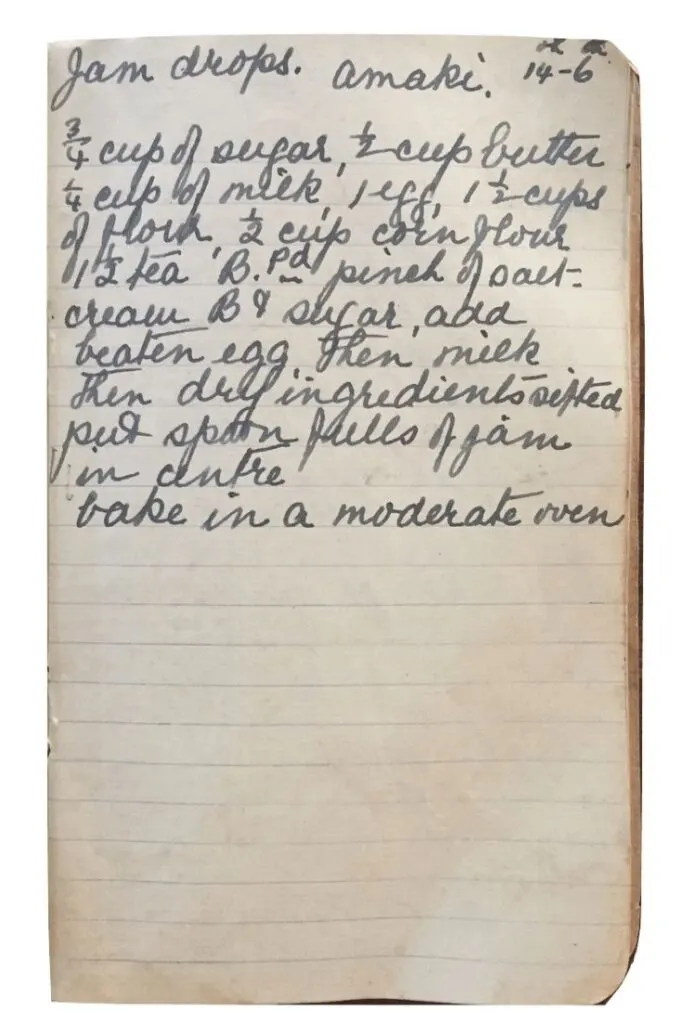 Jam drops. amaki. 14-6
3/4 cup of sugar, 1/2 cup butter
1/4 cup of milk, 1 egg, 1 1/2 cups
of flour, 1/2 cup corn flour
1 1/2 tea B.Pd pinch of salt-
cream B & sugar, add
beaten egg then milk
then dry ingredients sifted
put spoon fulls of jam
in centre
bake in a moderate oven